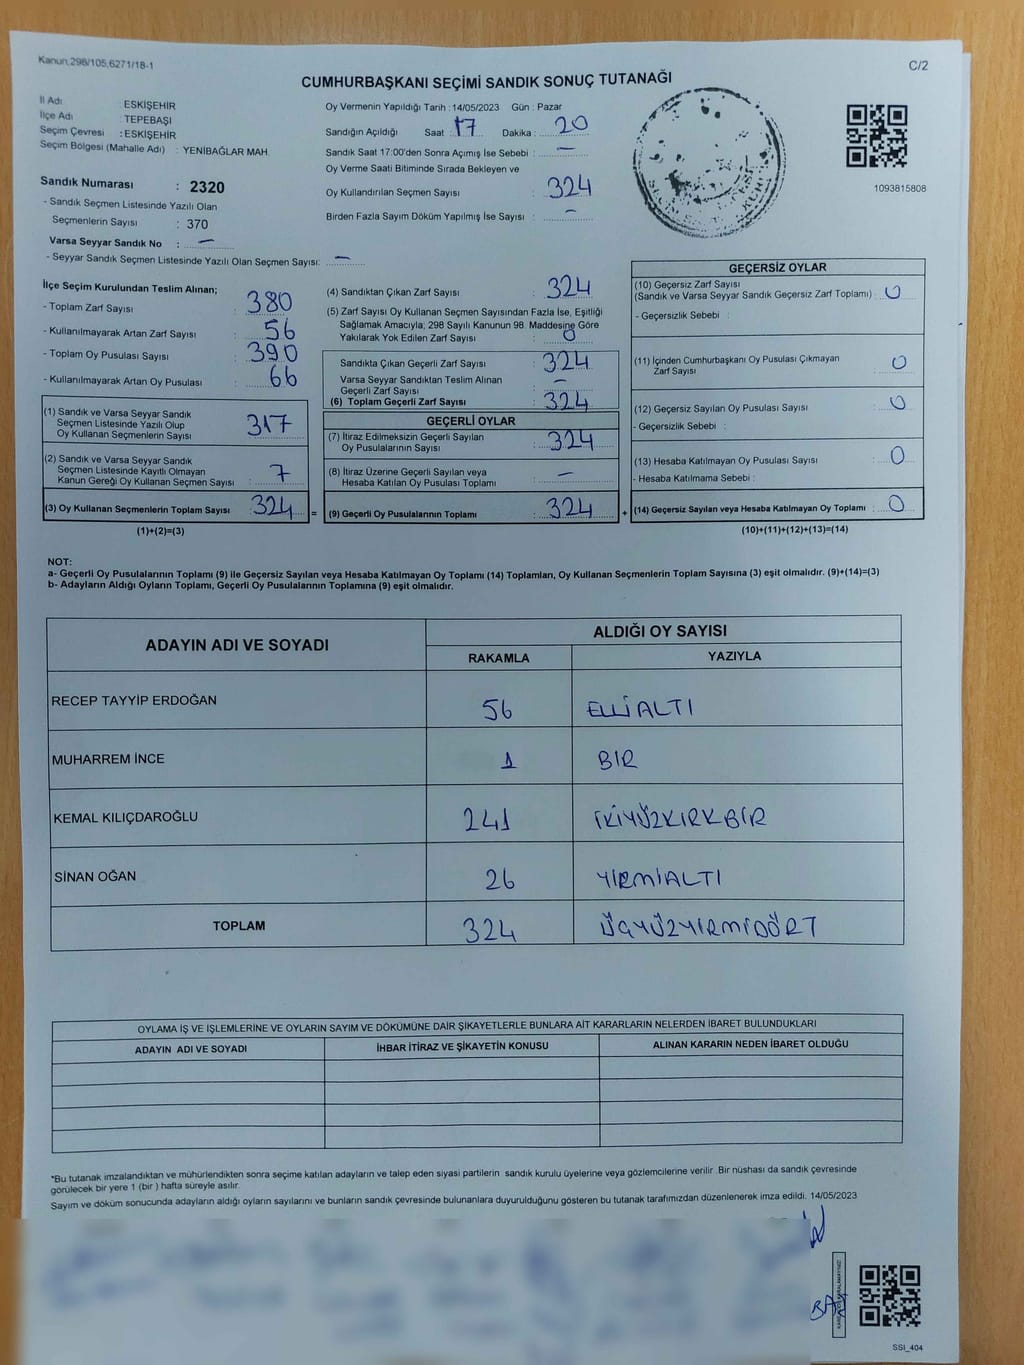 Kanun.298/105,6271/18-1
C/2
CUMHURBAŞKANI SEÇİMİ SANDIK SONUÇ TUTANAĞI
İl Adı : ESKİŞEHİR
İlçe Adı : TEPEBAŞI
Seçim Çevresi : ESKİŞEHİR
Seçim Bölgesi (Mahalle Adı) : YENİBAĞLAR MAH.
Sandık Numarası : 2320
- Sandık Seçmen Listesinde Yazılı Olan
Seçmenlerin Sayısı : 370
Varsa Seyyar Sandık No : —
- Seyyar Sandık Seçmen Listesinde Yazılı Olan Seçmen Sayısı: —
Oy Vermenin Yapıldığı Tarih : 14/05/2023 Gün : Pazar
Sandığın Açıldığı Saat : 17 Dakika : 20
Sandık Saat 17:00'den Sonra Açımış İse Sebebi : —
Oy Verme Saati Bitiminde Sırada Bekleyen ve
Oy Kullandırılan Seçmen Sayısı : 324
Birden Fazla Sayım Döküm Yapılmış İse Sayısı : —
1093815808
İlçe Seçim Kurulundan Teslim Alınan;
- Toplam Zarf Sayısı : 380
- Kullanılmayarak Artan Zarf Sayısı : 56
- Toplam Oy Pusulası Sayısı : 390
- Kullanılmayarak Artan Oy Pusulası : 66
(1) Sandık ve Varsa Seyyar Sandık
Seçmen Listesinde Yazılı Olup
Oy Kullanan Seçmenlerin Sayısı : 317
(2) Sandık ve Varsa Seyyar Sandık
Seçmen Listesinde Kayıtlı Olmayan
Kanun Gereği Oy Kullanan Seçmen Sayısı : 7
(3) Oy Kullanan Seçmenlerin Toplam Sayısı : 324 =
(1)+(2)=(3)
(4) Sandıktan Çıkan Zarf Sayısı : 324
(5) Zarf Sayısı Oy Kullanan Seçmen Sayısından Fazla İse, Eşitliği
Sağlamak Amacıyla; 298 Sayılı Kanunun 98. Maddesine Göre
Yakılarak Yok Edilen Zarf Sayısı : 0
Sandıkta Çıkan Geçerli Zarf Sayısı : 324
Varsa Seyyar Sandıktan Teslim Alınan
Geçerli Zarf Sayısı : —
(6) Toplam Geçerli Zarf Sayısı : 324
GEÇERLİ OYLAR
(7) İtiraz Edilmeksizin Geçerli Sayılan
Oy Pusulalarının Sayısı : 324
(8) İtiraz Üzerine Geçerli Sayılan veya
Hesaba Katılan Oy Pusulası Toplamı : —
(9) Geçerli Oy Pusulalarının Toplamı : 324 +
GEÇERSİZ OYLAR
(10) Geçersiz Zarf Sayısı
(Sandık ve Varsa Seyyar Sandık Geçersiz Zarf Toplamı) : 0
- Geçersizlik Sebebi :
(11) İçinden Cumhurbaşkanı Oy Pusulası Çıkmayan
Zarf Sayısı : 0
(12) Geçersiz Sayılan Oy Pusulası Sayısı : 0
- Geçersizlik Sebebi :
(13) Hesaba Katılmayan Oy Pusulası Sayısı : 0
- Hesaba Katılmama Sebebi :
(14) Geçersiz Sayılan veya Hesaba Katılmayan Oy Toplamı : 0
(10)+(11)+(12)+(13)=(14)
NOT:
a- Geçerli Oy Pusulalarının Toplamı (9) ile Geçersiz Sayılan veya Hesaba Katılmayan Oy Toplamı (14) Toplamları, Oy Kullanan Seçmenlerin Toplam Sayısına (3) eşit olmalıdır. (9)+(14)=(3)
b- Adayların Aldığı Oyların Toplamı, Geçerli Oy Pusulalarının Toplamına (9) eşit olmalıdır.
ADAYIN ADI VE SOYADI ALDIĞI OY SAYISI
RAKAMLA YAZIYLA
RECEP TAYYİP ERDOĞAN 56 ELLİALTI
MUHARREM İNCE 1 BİR
KEMAL KILIÇDAROĞLU 241 İKİYÜZKIRKBİR
SİNAN OĞAN 26 YİRMİALTI
TOPLAM 324 ÜÇYÜZYİRMİDÖRT
OYLAMA İŞ VE İŞLEMLERİNE VE OYLARIN SAYIM VE DÖKÜMÜNE DAİR ŞİKAYETLERLE BUNLARA AİT KARARLARIN NELERDEN İBARET BULUNDUKLARI
ADAYIN ADI VE SOYADI İHBAR İTİRAZ VE ŞİKAYETİN KONUSU ALINAN KARARIN NEDEN İBARET OLDUĞU
*Bu tutanak imzalandıktan ve mühürlendikten sonra seçime katılan adayların ve talep eden siyasi partilerin sandık kurulu üyelerine veya gözlemcilerine verilir. Bir nüshası da sandık çevresinde
görülecek bir yere 1 (bir ) hafta süreyle asılır.
Sayım ve döküm sonucunda adayların aldığı oyların sayılarını ve bunların sandık çevresinde bulunanlara duyurulduğunu gösteren bu tutanak tarafımızdan düzenlenerek imza edildi. 14/05/2023
SSI_404